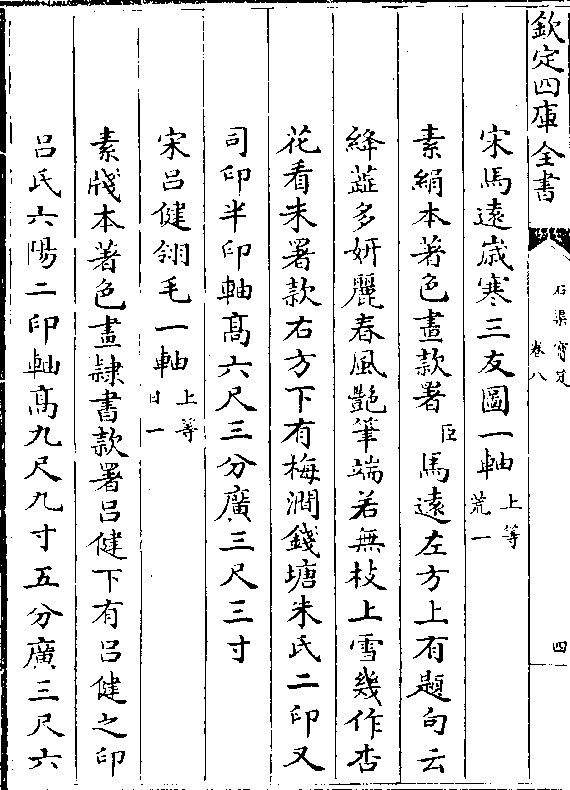 欽定四庫全書
石渠寶笈
卷八
四
宋馬遠歳寒三友圖一軸上等荒一
素絹本著色畫款署臣馬遠左方上有題句云
絳蘂多妍麗春風艶筆端若無枝上雪幾作杏
花看未署款右方下有梅澗錢塘朱氏二印又
司印半印軸髙六尺三分廣三尺三寸
宋呂健翎毛一軸上等日一
素牋本著色畫隷書款署呂健下有呂健之印
呂氏六陽二印軸髙九尺九寸五分廣三尺六